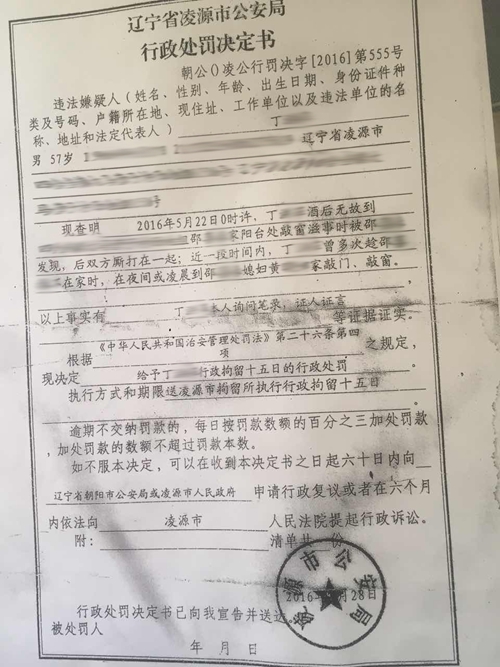 辽宁省凌源市公安局
行政处罚决定书
朝公()凌公行罚决字[2016]第555号
违法嫌疑人(姓名、性别、年龄、出生日期、身份证件种
类及号码、户籍所在地、现住址、工作单位以及违法单位的名
称、地址和法定代表人) 丁
男 57岁 1 2 辽宁省凌源市
号
现查明 2016年5月22日0时许,丁 酒后无故到
邵 家阳台处敲窗滋事时被邵
发现,后双方厮打在一起;近一段时间内,丁 曾多次趁邵
在家时,在夜间或凌晨到邵 媳妇黄 家敲门、敲窗。
以上事实有 丁 本人询问笔录,证人证言 等证据证实。
根据 《中华人民共和国治安管理处罚法》第二十六条第四项 之规定,
现决定 给予丁 行政拘留十五日的行政处罚
执行方式和期限送凌源市拘留所执行行政拘留十五日
逾期不交纳罚款的,每日按罚款数额的百分之三加处罚款
,加处罚款的数额不超过罚款本数。
如不服本决定,可以在收到本决定书之日起六十日内向
辽宁省朝阳市公安局或凌源市人民政府 申请行政复议或者在六个月
内依法向 凌源市 人民法院提起行政诉讼。
附: 清单共 份
源市公安局
2016 月28日
行政处罚决定书已向我宣告并送达。
被处罚人
年 月 日